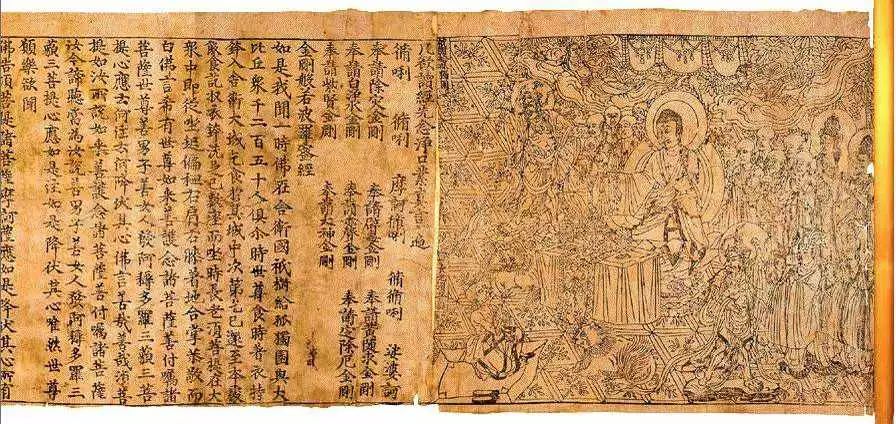 凡欲讀經先念淨口業真言一遍
脩唎 脩唎 摩訶脩唎 脩脩唎 娑婆訶
奉請除災金剛 奉請辟毒金剛 奉請黃隨求金剛
奉請白淨水金剛 奉請赤聲金剛 奉請定除厄金剛
奉請紫賢金剛 奉請大神金剛
金剛般若波羅蜜經
如是我聞一時佛在舍衛國祇樹給孤獨園與大
比丘眾千二百五十人俱尒時世尊食時著衣持
鉢入舍衛大城乞食於其城中次第乞已還至本處
飯食訖收衣鉢洗足已敷座而坐時長老須菩提在大
眾中即從坐起偏袒右肩右膝著地合掌恭敬而
白佛言希有世尊如來善護念諸菩薩善付囑諸
菩薩世尊善男子善女人發阿耨多羅三藐三菩
提心應云何住云何降伏其心佛言善哉善哉須菩
提如汝所說如來善護念諸菩薩善付囑諸菩薩
汝今諦聽當為汝說善男子善女人發阿耨多羅三
藐三菩提心應如是住如是降伏其心唯然世尊
願樂欲聞
佛告須菩提諸菩薩摩訶薩應如是降伏其心所有